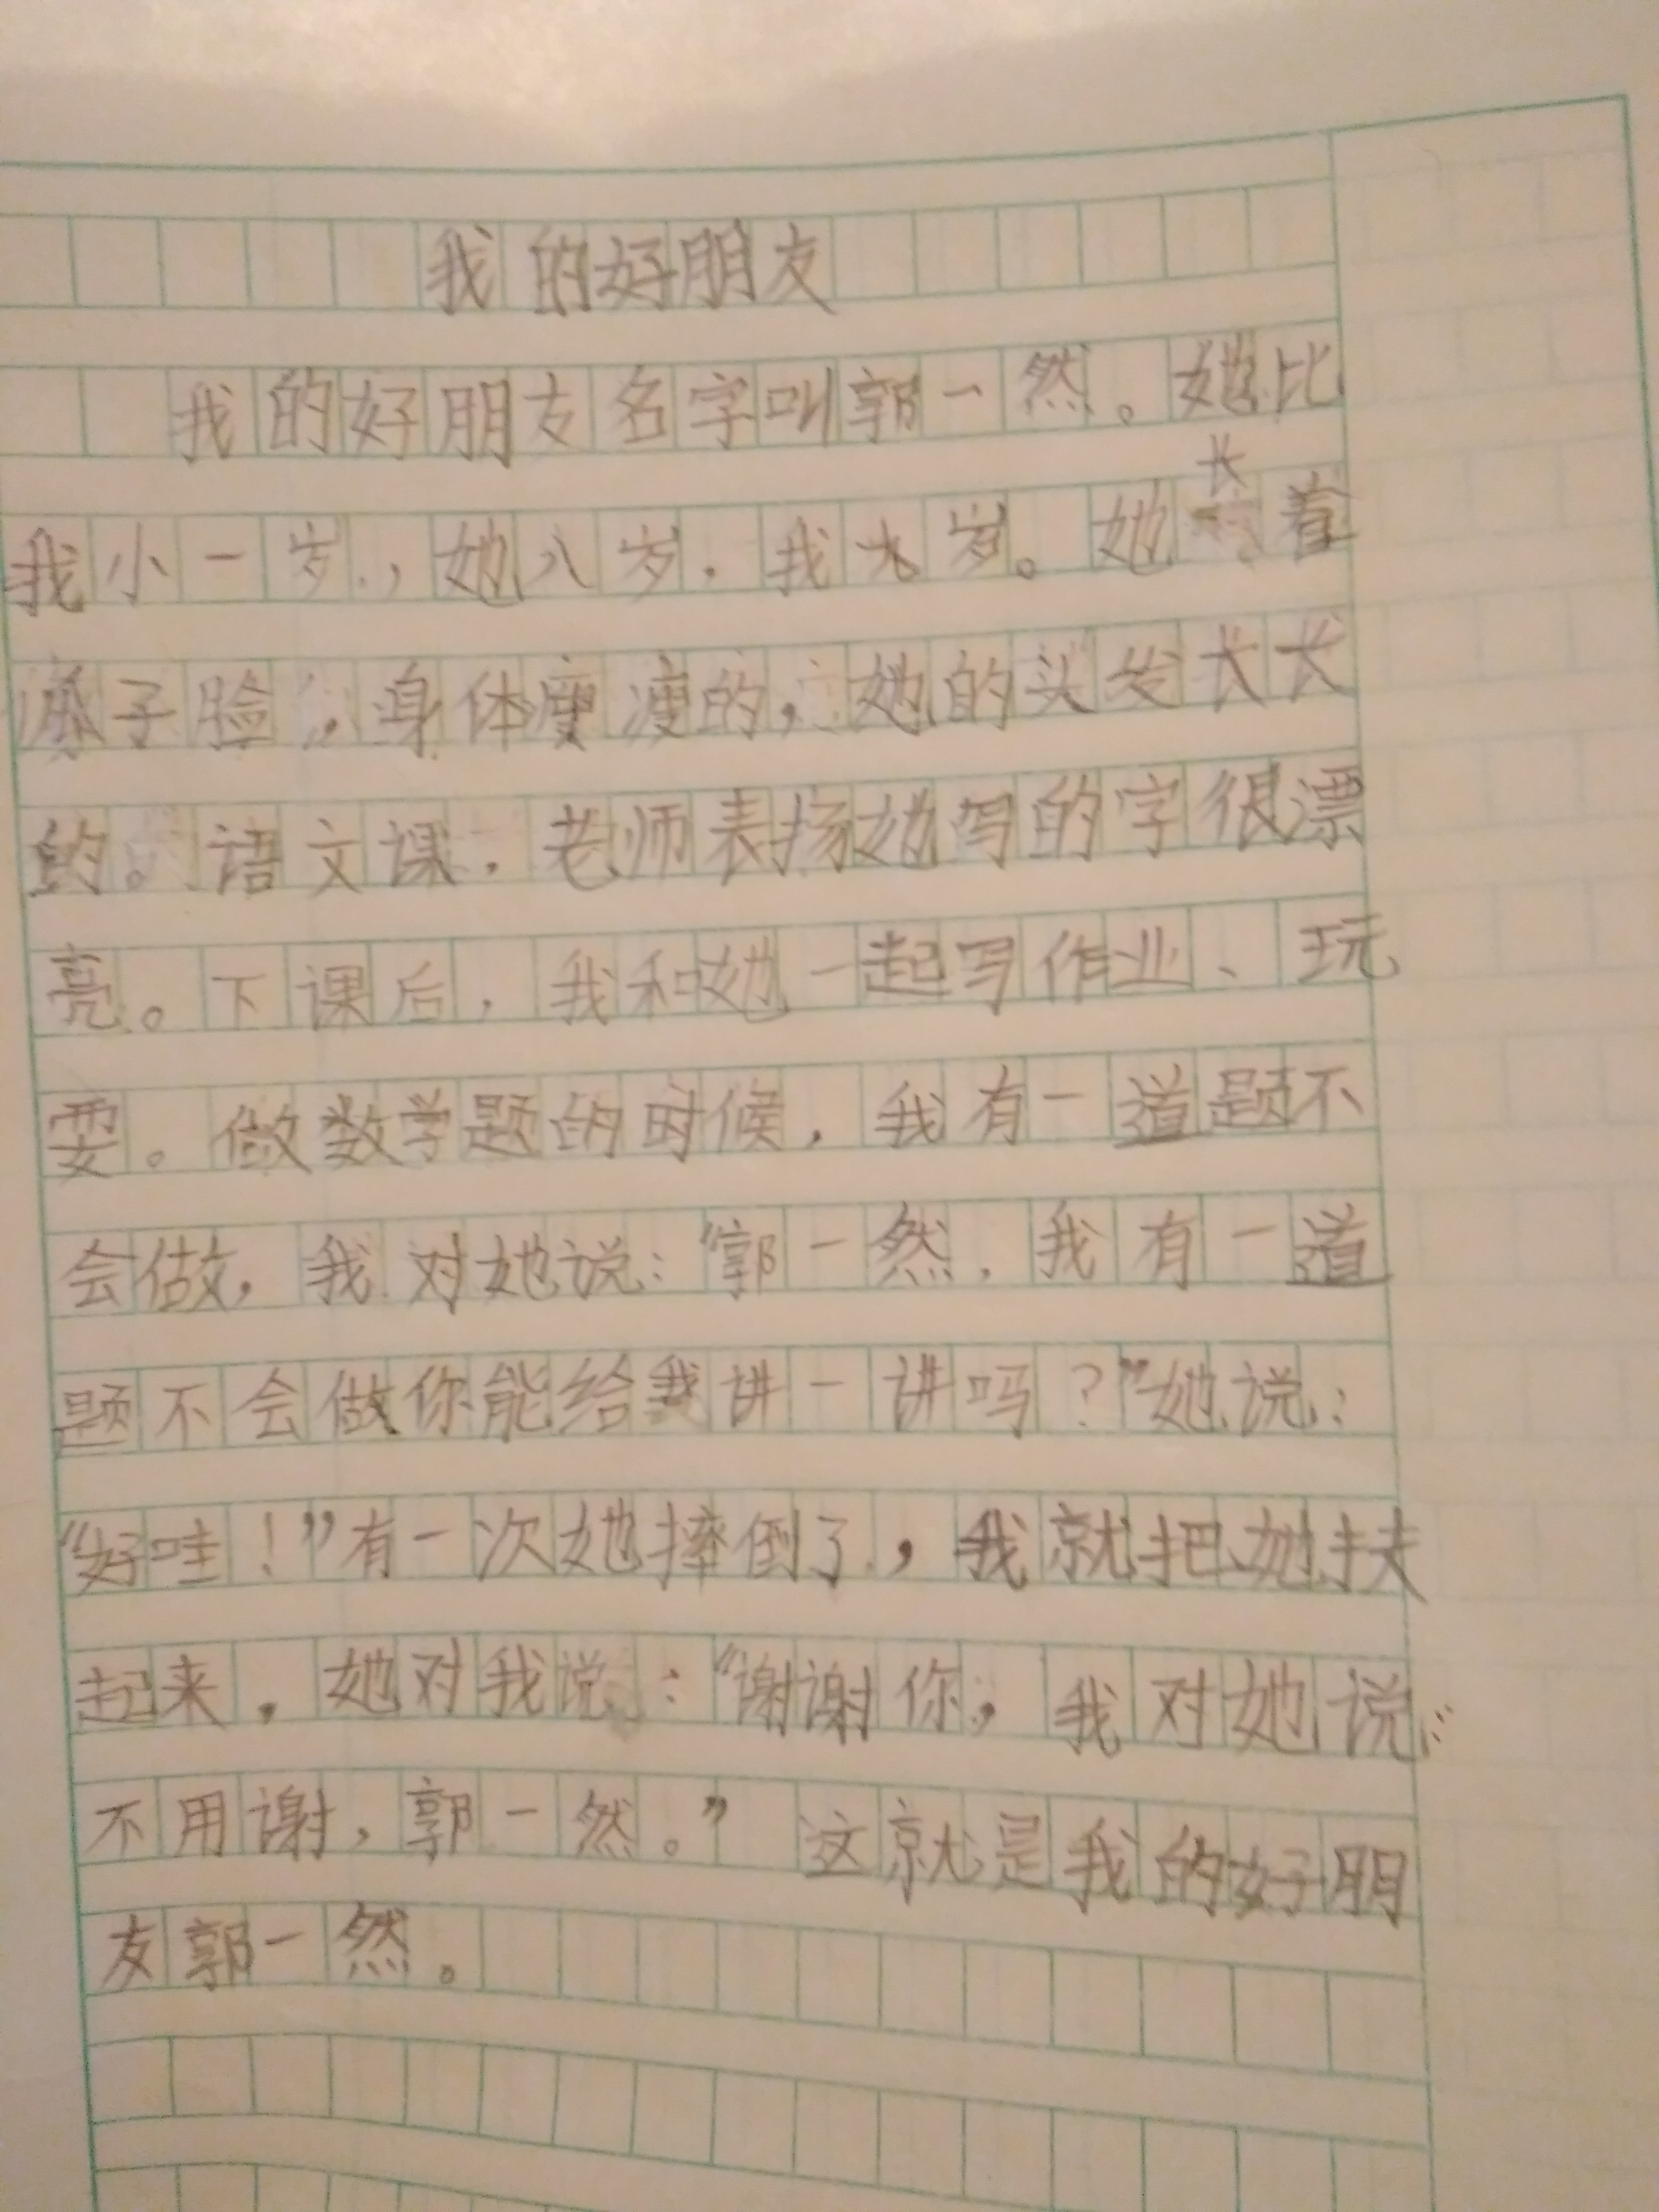 我的好朋友
我的好朋友名字叫郭一然。她比
我小一岁，她八岁，我九岁。她长着
瓜子脸，身体瘦瘦的，她的头发长长
的。语文课，老师表扬她写的字很漂
亮。下课后，我和她一起写作业、玩
耍。做数学题的时候，我有一道题不
会做，我对她说：“郭一然，我有一道
题不会做你能给我讲一讲吗？”她说：
“好哇！”有一次她摔倒了，我就把她扶
起来，她对我说：“谢谢你，我对她说：
不用谢，郭一然。”这就是我的好朋
友郭一然。